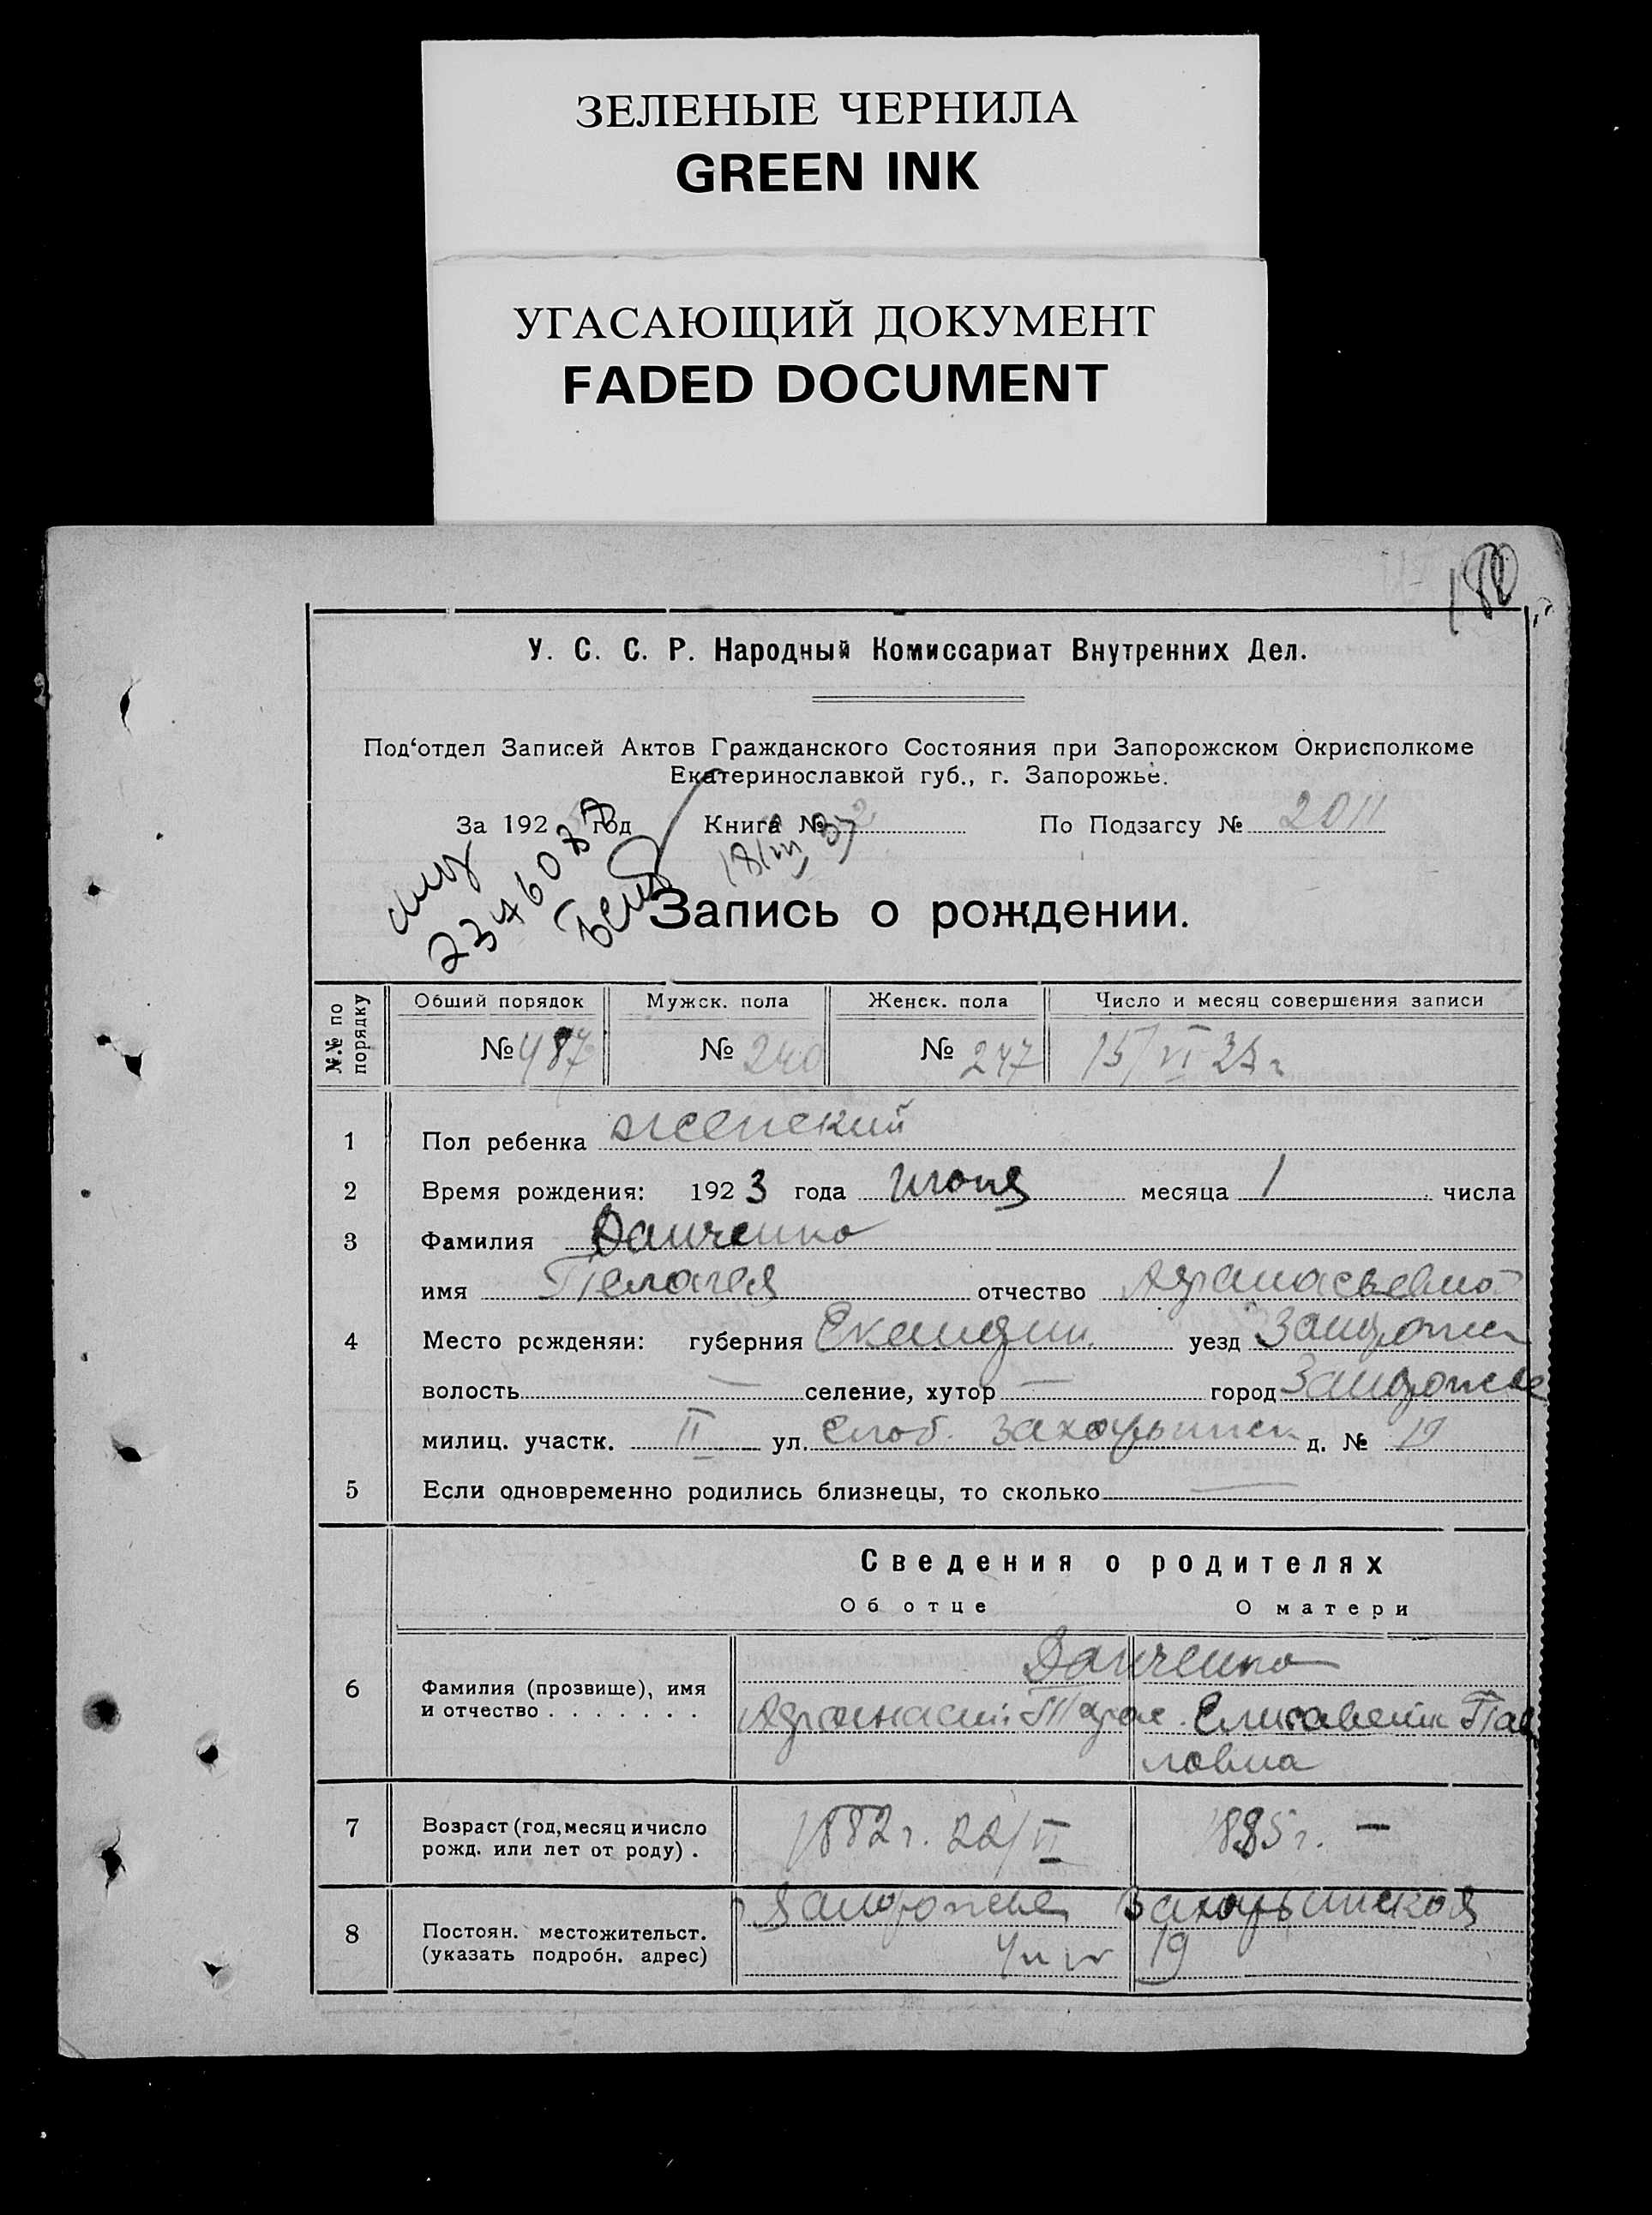 ЗЕЛЕНЫЕ ЧЕРНИЛА
GREEN INK
УГАСАЮЩИЙ ДОКУМЕНТ
FADED DOCUMENT
У. С. С. Р. Народный Комиссариат Внутренних Дел.
Под‘отдел Записей Актов Гражданского Состояния при Запорожском Окрисполкоме
Екатеринославкой губ., г. Запорожье.
За 192 год Книга № По Подзагсу № 2011
Запись о рождении.
№№ по порядку
Обший порядок Мужск. пола Женск. пола Число и месяц совершения записи
№ 487 № 240 № 247 15/VI
1 Пол ребенка женский
2 Время рождения: 1923 года июня месяца 1 числа
3 Фамилия Данченко
имя Пелагея отчество Афанасьевна
4 Место рожденяи: губерния уезд Запорож
волость — селение, хутор — город Запорожье
милиц. участк. II ул. Слоб. д. № 19
5 Если одновременно родились близнецы, то сколько —
Сведения о родителях
Об отце О матери
6 Фамилия (прозвище), имя
и отчество . . . . . . .
Данченко
Афанасий Елисавета Пав
ловна
7 Возраст (год, месяц и число
рожд. или лет от роду) .
1882 г. 20/VI 1885 г. —
8 Постоян. местожительст.
(указать подробн. адрес)
Запорожье
19